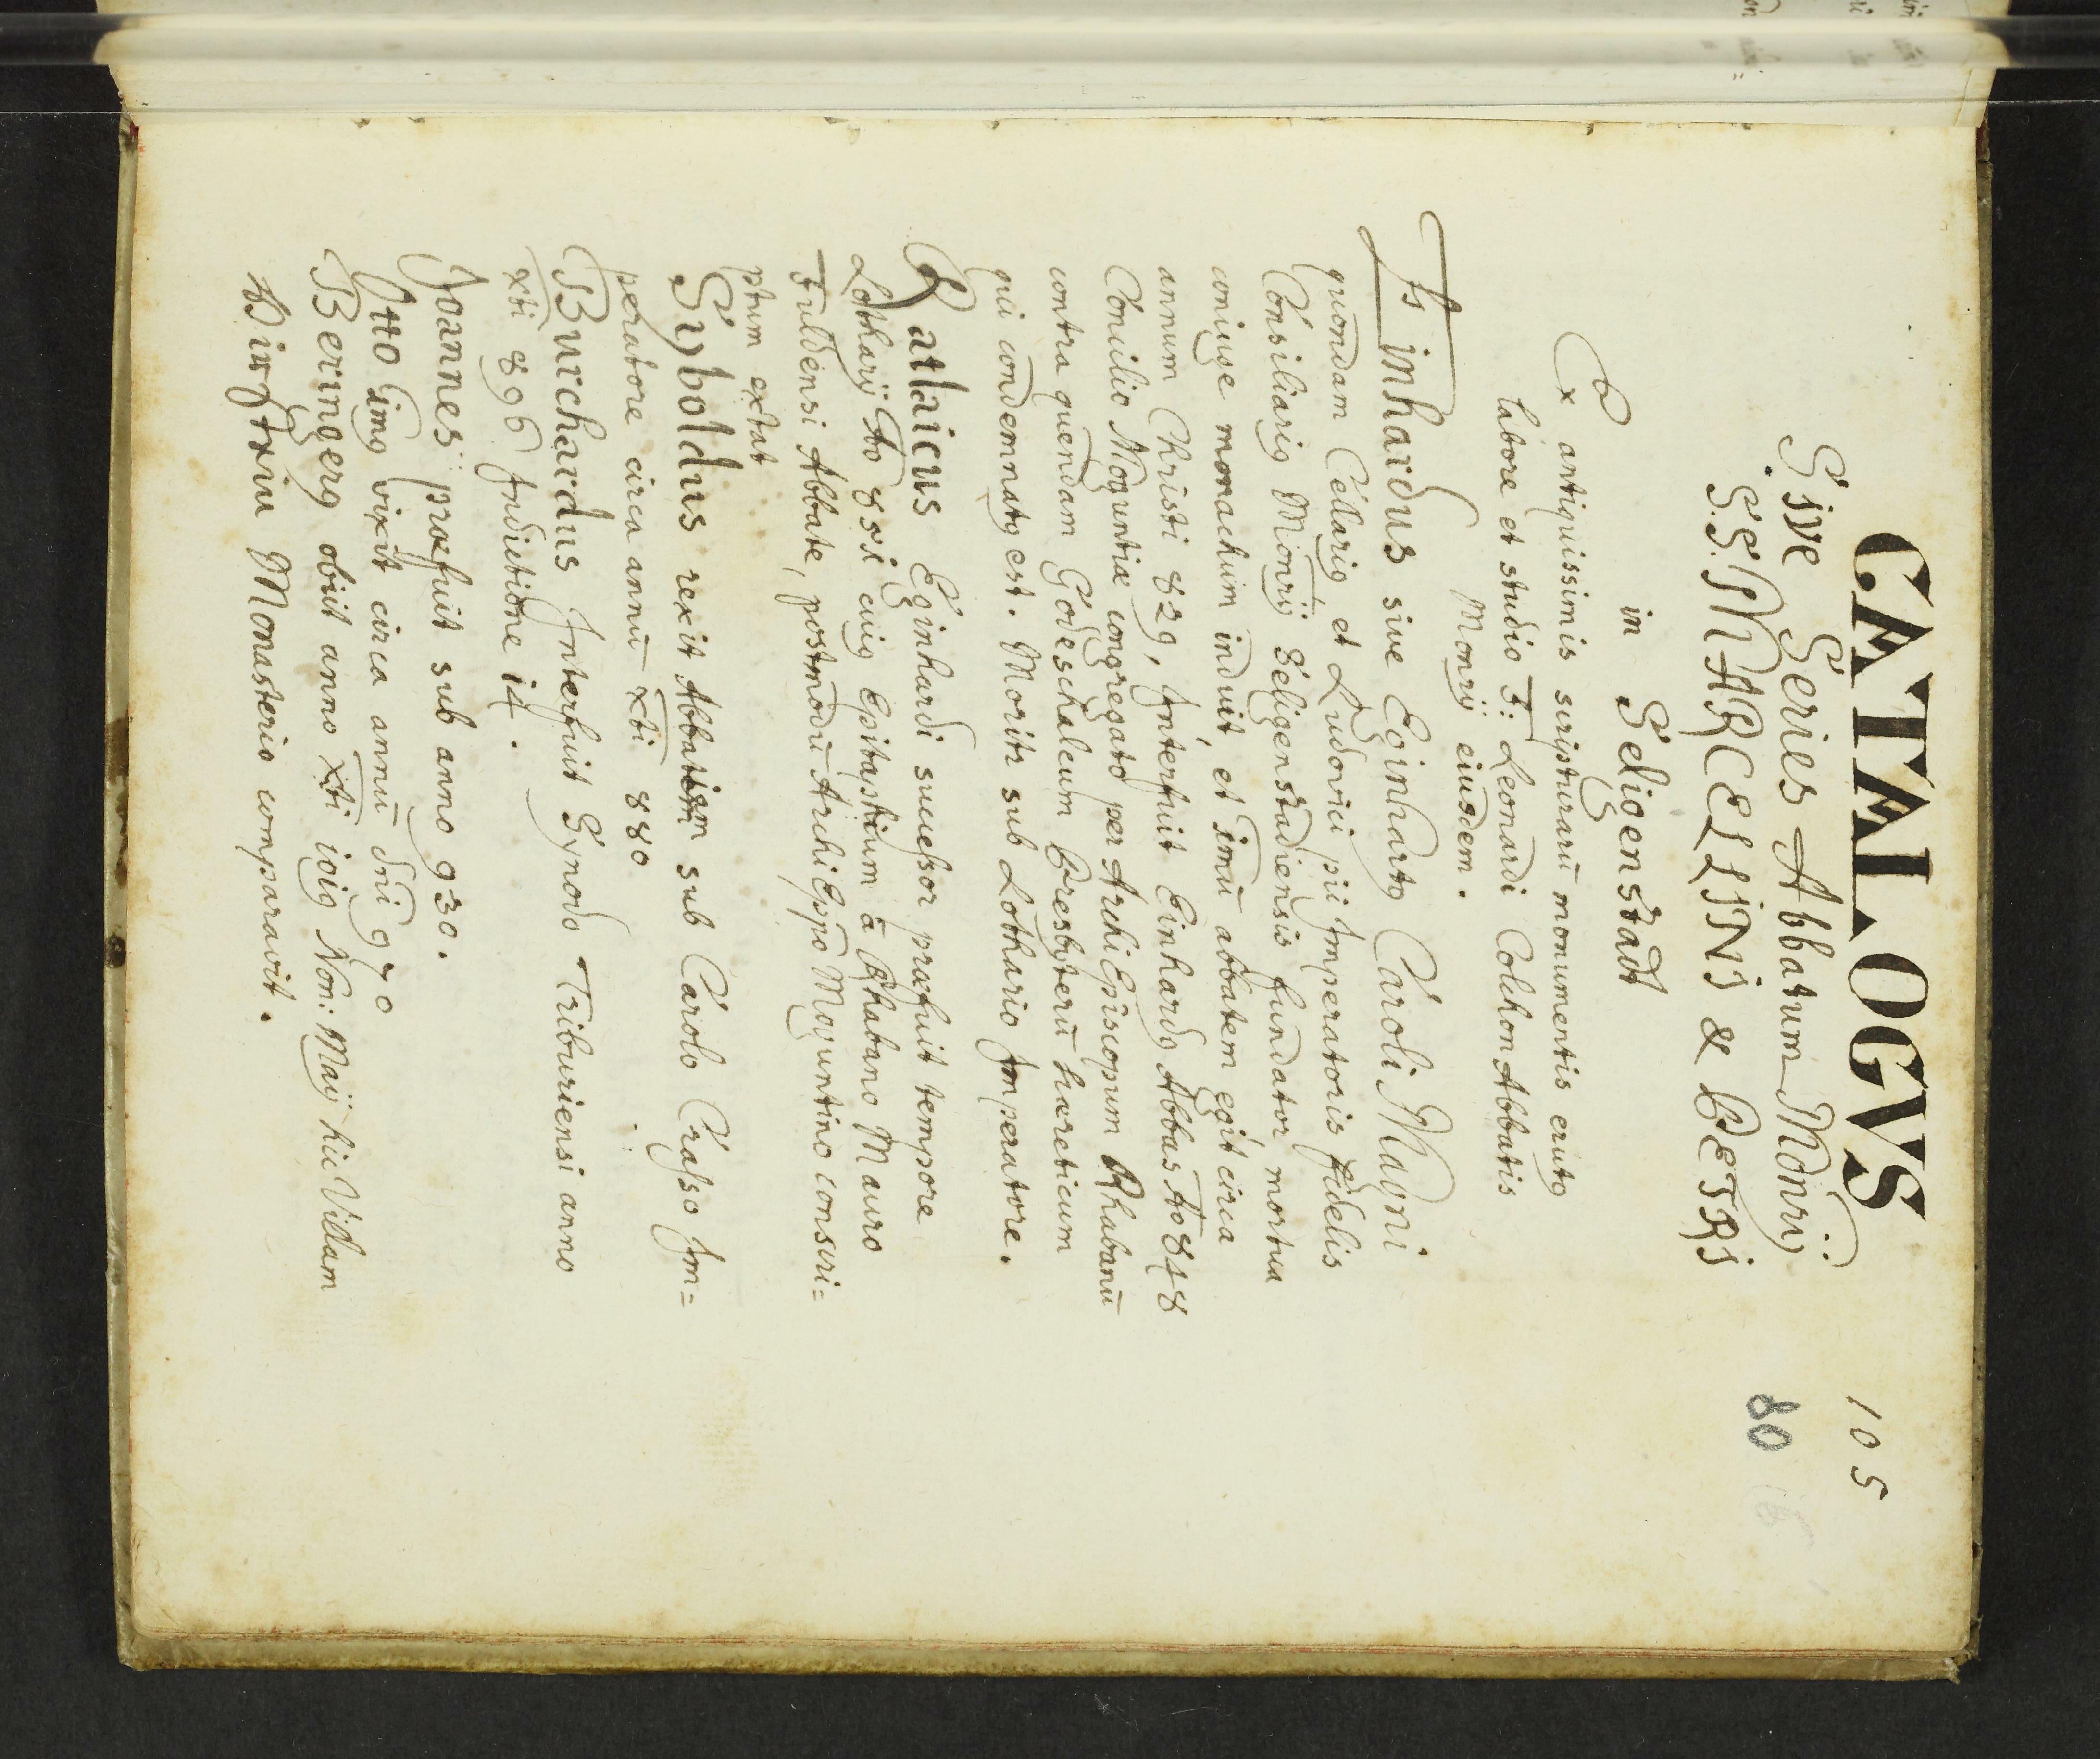 CATALOGVS 105
Sive Series Abbatum Monrij 80
S.S. MARCELLINI & PETRI
in Seligenstadt
Ex antiquissimis scripturarū monumentis erutꝰ
labore et studio F: Leonardi Colchon Abbatis
Monrij eiusdem.
Einhardus sive Eginhartꝰ Caroli Magni
quondam Cellariꝰ et Ludovici pii Imperatoris fidelis
Consiliariꝰ Monrij Seligenstadiensis fundator mortua
coniuge monachum induit, et imū abbatem egit circa
annum Christi 829, Interfuit Einhardꝰ Abbas Ao 848
Concilio Moguntiæ congregato per ArchiEpiscopum Rhabanū
contra quendam Godeschalcum Presbyterū hæreticum
qui condemnatꝰ est. Moritr sub Lothario Imperatore.
Ratlaicus Eginhardi succeſsor præfuit tempore
Lotharij Ao 851 cuiꝰ Epitaphium à Rhabano Mauro
Fuldensi Abbate, postmodū ArchiEppo Moguntino conscri=
ptum extat
Syboldus rexit Abbatiam sub Carolo Craſso Im=
peratore circa annū xti 880
Burchardus Interfuit Synodo Triburiensi anno
xti 896 Indictione 14.
Joannes præfuit sub anno 930.
Otto imꝰ vixit circa annū dni 970
Beringerꝰ obiit anno xti 1019 Non: Maij hic Villam
Monasterio comparavit.